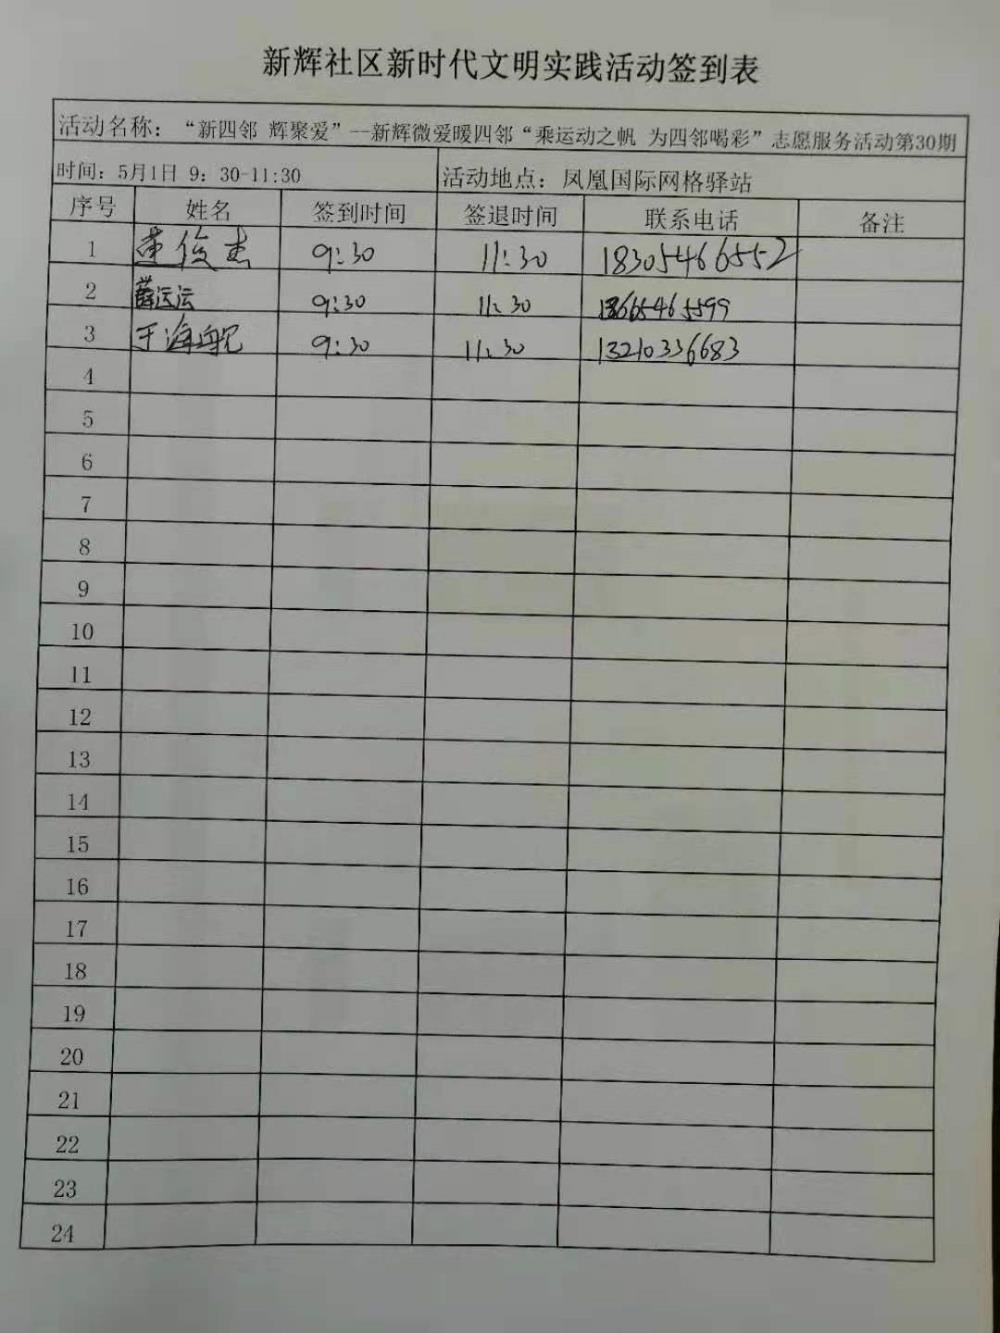 新辉社区新时代文明实践活动签到表
活动名称：“新四邻 辉聚爱”--新辉微爱暖四邻“乘运动之帆 为四邻喝彩”志愿服务活动第30期
时间：5月1日 9：30-11:30 活动地点：凤凰国际网格驿站
序号 姓名 签到时间 签退时间 联系电话 备注
1 李俊杰 9:30 11:30 18305466552
2 薛运运 9:30 11:30 13665465599
3 于海舰 9:30 11:30 13210336683
4
5
6
7
8
9
10
11
12
13
14
15
16
17
18
19
20
21
22
23
24